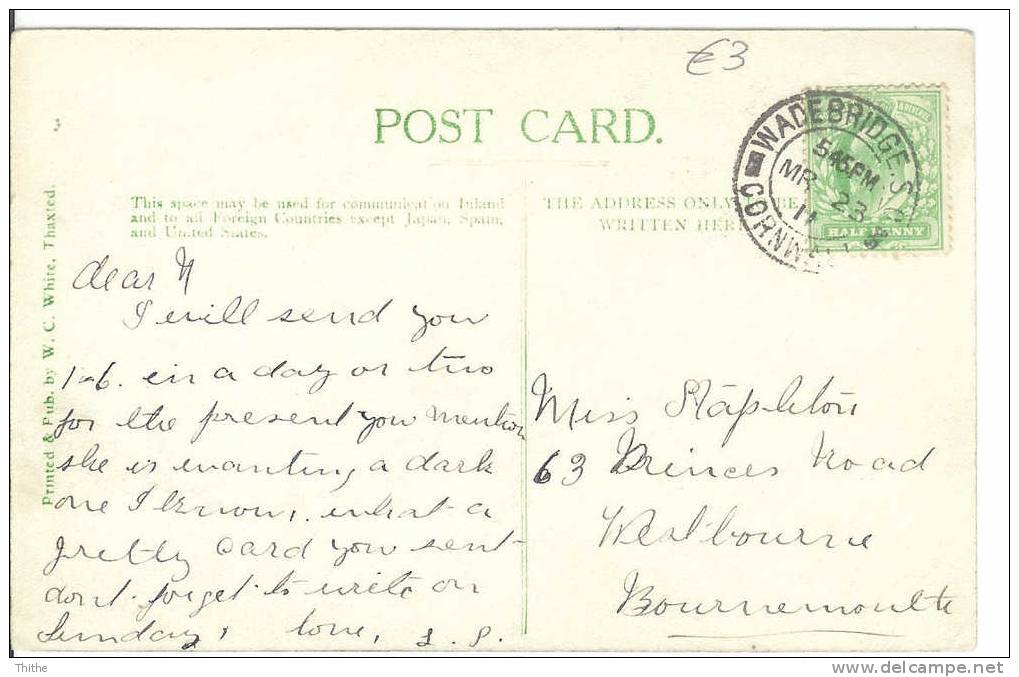 €3
POST CARD.
WADEBRIDGE. S.O
5 45 PM
MR 23
11
CORNWALL
HALFPENNY
This space may be used for communication Inland
and to all Foreign Countries except Japan, Spain,
and United States.
THE ADDRESS ONLY TO BE
WRITTEN HERE
Printed & Pub. by W. C. White, Thaxted.
dear N
I will send you
1-6. in a day or two
for the present you mention
she is wanting a dark
one I know, what a
pretty card you sent
dont forget to write on
Sunday, love, L. S.
Miss Stapleton
63 Princes Road
Westbourne
Bournemouth
Thithe
www.delcampe.net